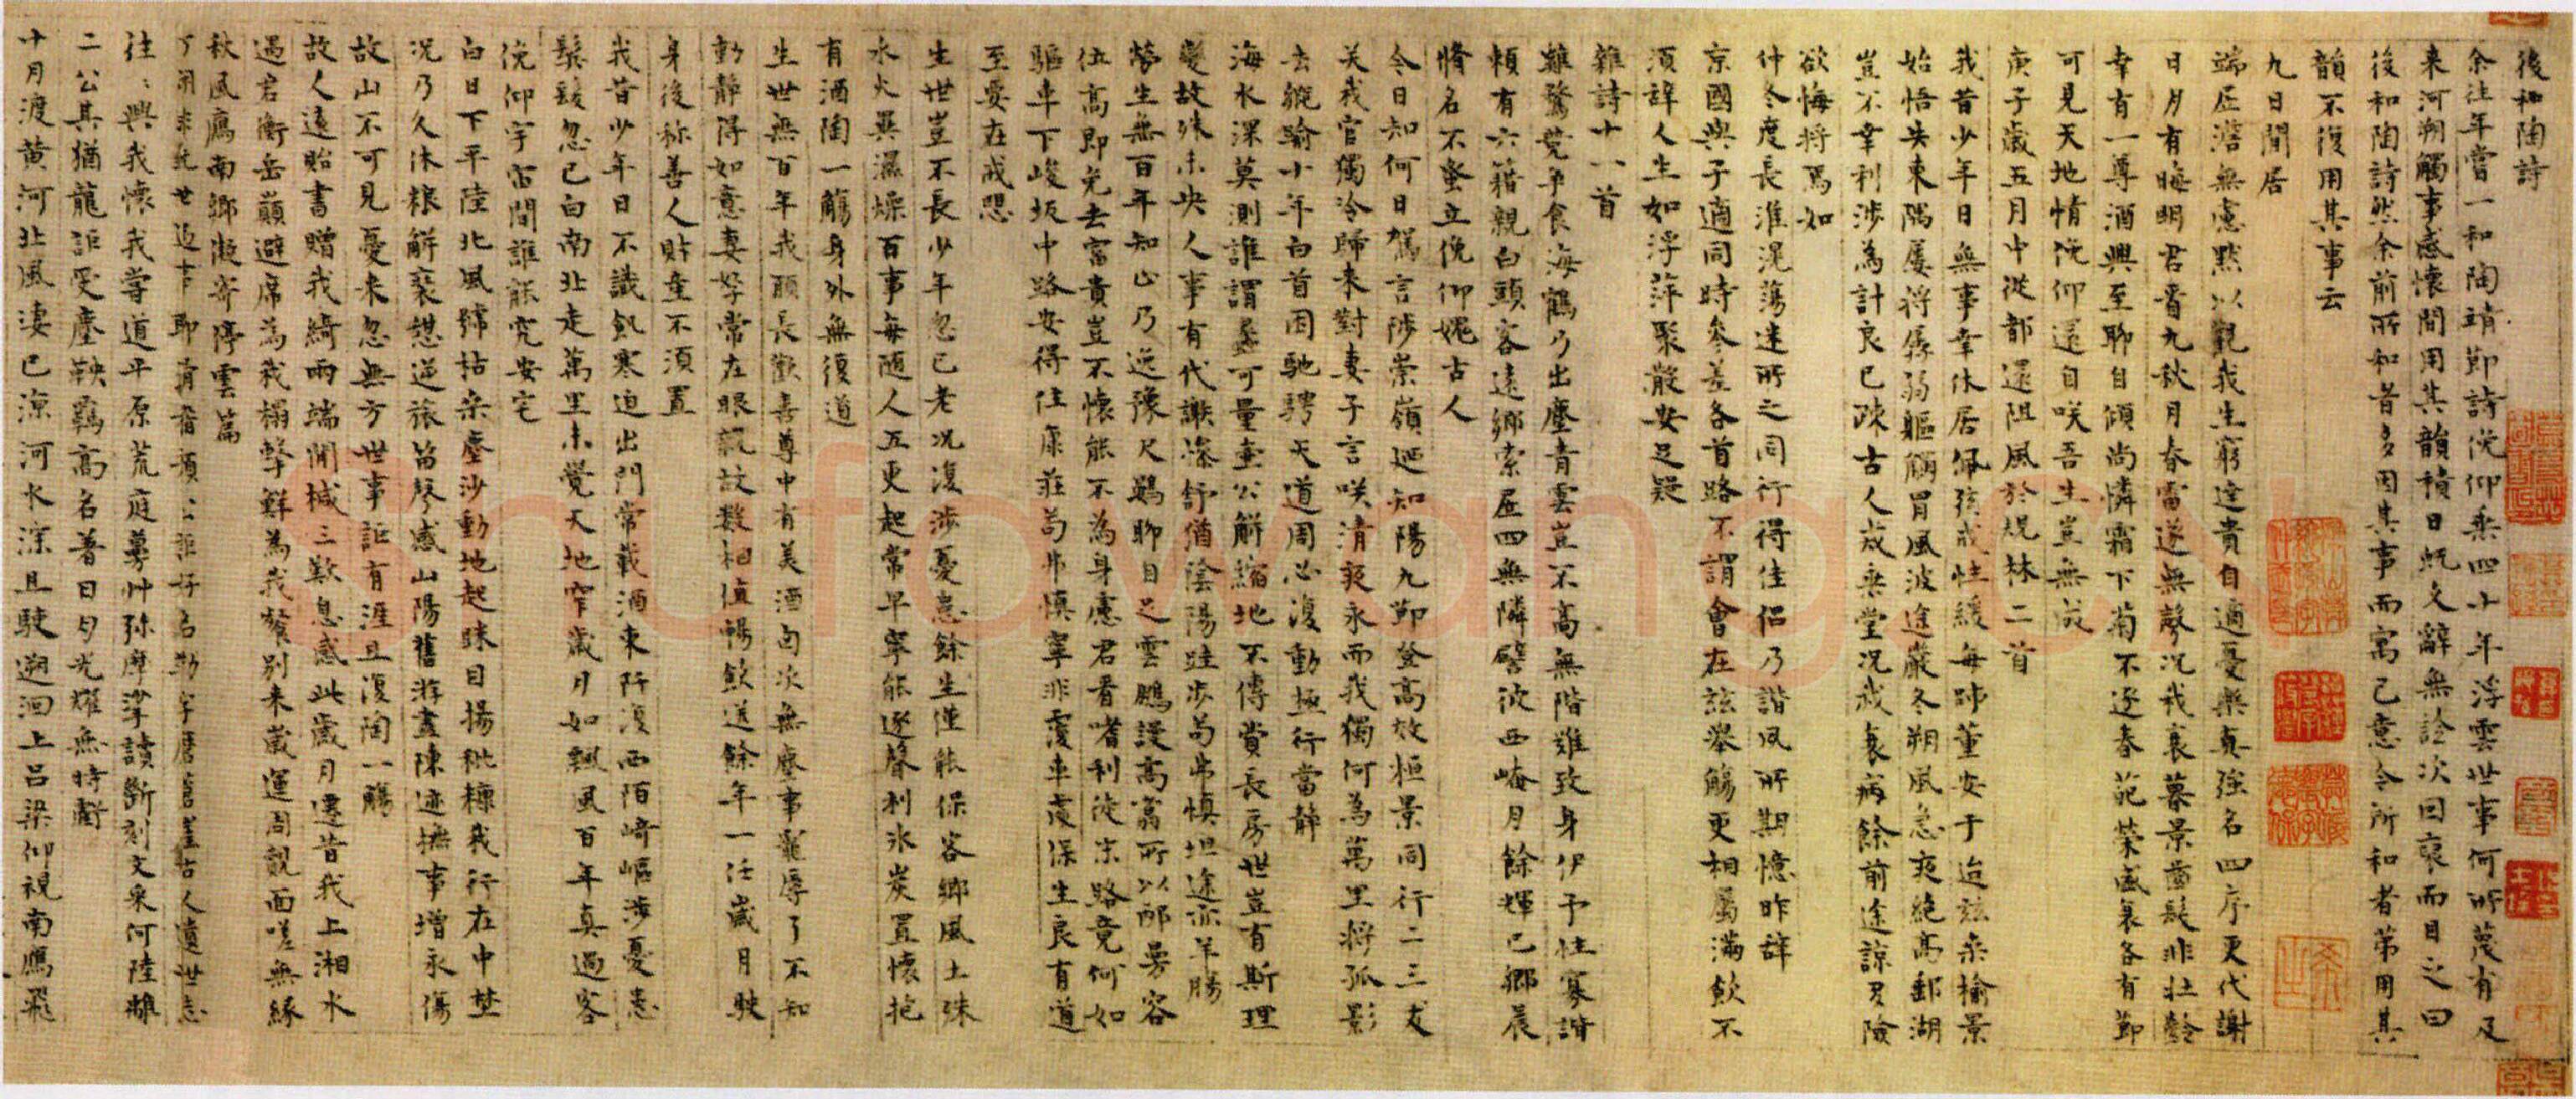 後和陶詩
余往年嘗一和陶靖節詩俛仰乘四十年浮雲世事何所蔑有及
来河朔觸事感懷間用其韻積日既久辭無詮次因裒而目之曰
後和陶詩然余前所和者多因其事而寓己意今所和者第用其
韻不復用其事云
九日閒居
端居澹無慮默以觀我生窮達貴自適憂樂真強名四序更代謝
日月有晦明君看九秋月春雷遂無聲况我衰暮景齒髮非壯齡
幸有一尊酒興至聊自傾尚憐霜下菊不逐春葩榮盛衰各有節
可見天地情俛仰還自咲吾生豈無成
庚子歲五月中從都還阻風於規林二首
我昔少年日無事幸休居佩弦戒性緩每師董安于迨玆桑榆景
始悟失東隅屢將孱弱軀觸冒風波途嚴冬朔風急夜絶高郵湖
豈不幸利涉為計良已疎古人戒垂堂况我衰病餘前途諒多險
欲悔將焉如
仲冬度長淮滉蕩迷所之同行得佳侣乃諧夙所期憶昨辭
京國與子適同時參差各首路不謂會在玆舉觴更相屬滿飲不
須辭人生如浮萍聚散安足疑
雜詩十一首
雞鶩競争食海鶴乃出塵青雲豈不高無階難致身伊予性寡諧
頼有六籍親白頭客遠鄉索居四無隣譬彼西崦月餘輝已鄉晨
脩名不蚤立俛仰媿古人
今日知何日駕言陟崇嶺廼知陽九節登高效桓景同行二三友
关我官獨冷歸来對妻子言咲清夜永而我獨何為萬里將孤影
去縱踰十年白首困馳騁天道周必復動極行當静
海水深莫測誰謂蠡可量壷公解縮地不傳費長房世豈有斯理
變故殊未央人事有代謝滌舒猶陰陽跬步苟弗慎坦途亦羊腸
勞生無百年知止乃逸豫尺鷃聊自足雲鵬謾高翥所以邴曼容
位高即免去富貴豈不懷能不為身慮君看嗜利徒末路竟何如
驅車下峻坂中路安得住康莊苟弗慎寧非覆車處保生良有道
至要在戒懼
生世豈不長少年忽已老况復涉憂患餘生僅能保客鄉風土殊
水火異濕燥百事每随人五更起常早寧能逐聲利氷炭置懷抱
有酒陶一觴身外無復道
生世無百年我願長歡喜尊中有美酒自次無塵事寵辱了不知
動静得如意妻孥常在眼親故数相值暢飲送餘年一任歲月駛
身後称善人貯壷不須置
我昔少年日不識飢寒迫出門常載酒東阡復西陌崎嶇涉憂患
鬓髮忽已白南北走萬里未覺天地窄歲月如飄風百年真過客
俛仰宇宙間誰能究安宅
白日下平陸北風號枯桑塵沙動地起眯目揚粃糠我行在中埜
况乃久休粮解裘憇逆旅笛聲感山陽舊游盡陳迹撫事增永傷
故山不可見憂来忽無方世事詎有涯且復陶一觴
故人遠貽書贈我綺兩端開椷三歎息感此歲月遷昔我上湘水
過君衡岳巔避席為我榻擊鮮為我餐别来歲運周覿面嗟無緣
秋風鴈南鄉凝寄停雲篇
往〻興我懷我嘗道平原荒庭蔓艸弥摩挲讀斷刻文采何陸離
二公其猶龍詎受塵鞅羈高名著日月光耀無時虧
十月渡黄河北風凄已凉河水深且駛遡洄上吕梁仰視南鴈飛